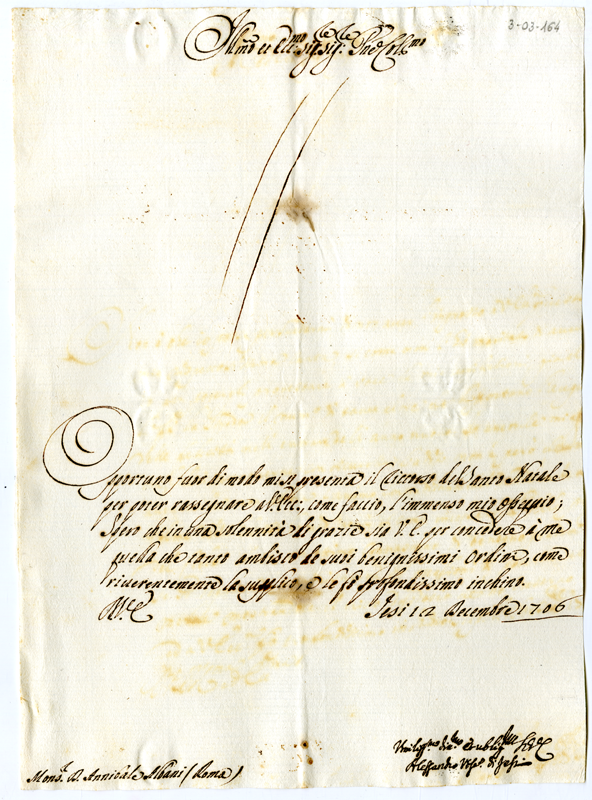 3-03-164
Ill.mo et Ecc.mo Sig.re Sig.re Pne Coll.mo
Opportuno fuor di modo mi si presenta il Ricorso del Santo Natale
per poter rassegnare a V. Ecc., come faccio, l'immenso mio Ossequio;
Spero che in una solennità di grazie sia V. E. per concedere à me
quella che tanto ambisco de suoi benignissimi Ordini, come
riverentemente la supplico, e le fò profondissimo inchino.
Jesi 12 Decembre 1706
Alessandro Vesc. di Jesi
Mons.r D. Annibale Albani (Roma)